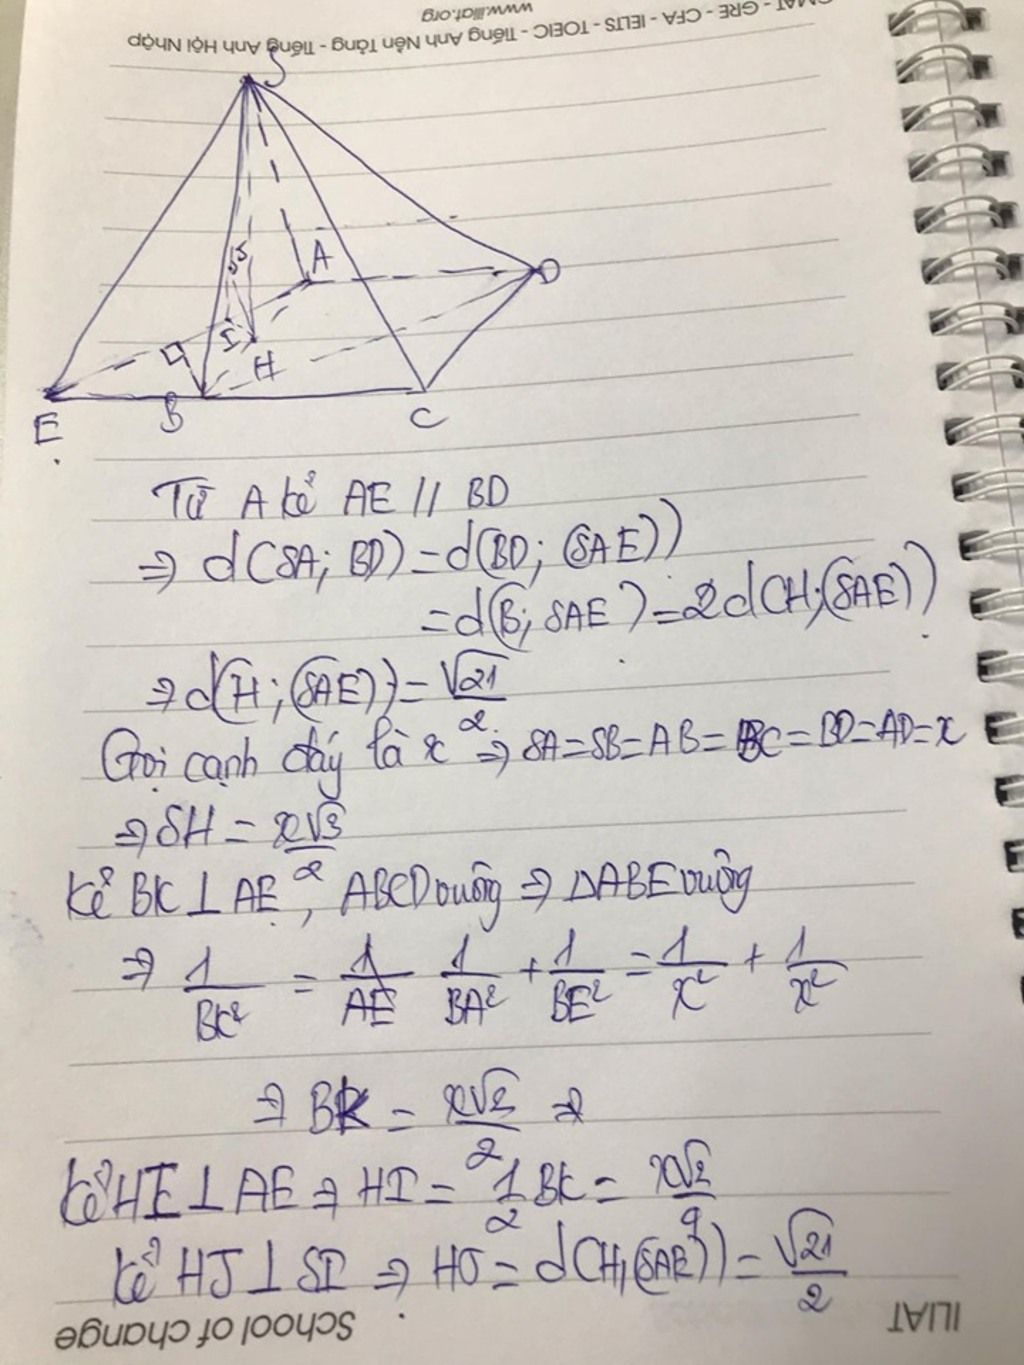 GMAT - GRE - CFA - IELTS - TOEIC - Tiếng Anh Nền Tảng - Tiếng Anh Hội Nhập
www.iliat.org
S
A
D
J
I
H
E
B
C
Từ A kẻ AE // BD
⇒ d(SA; BD) = d(BD; (SAE))
= d(B; SAE) = 2d(H;(SAE))
⇒ d(H;(SAE)) = √21/2
Gọi cạnh đáy là x ⇒ SA=SB=AB=BC=BD=AD=x
⇒ SH = x√3/2
Kẻ BK ⊥ AE, ABCD vuông ⇒ ΔABE vuông
⇒ 1/BK² = 1/BA² + 1/BE² = 1/x² + 1/x²
⇒ BK = x√2/2 ⇒
Kẻ HI ⊥ AE ⇒ HI = 1/2 BK = x√2/4
Kẻ HJ ⊥ SI ⇒ HJ = d(H,(SAE)) = √21/2
ILIAT School of change